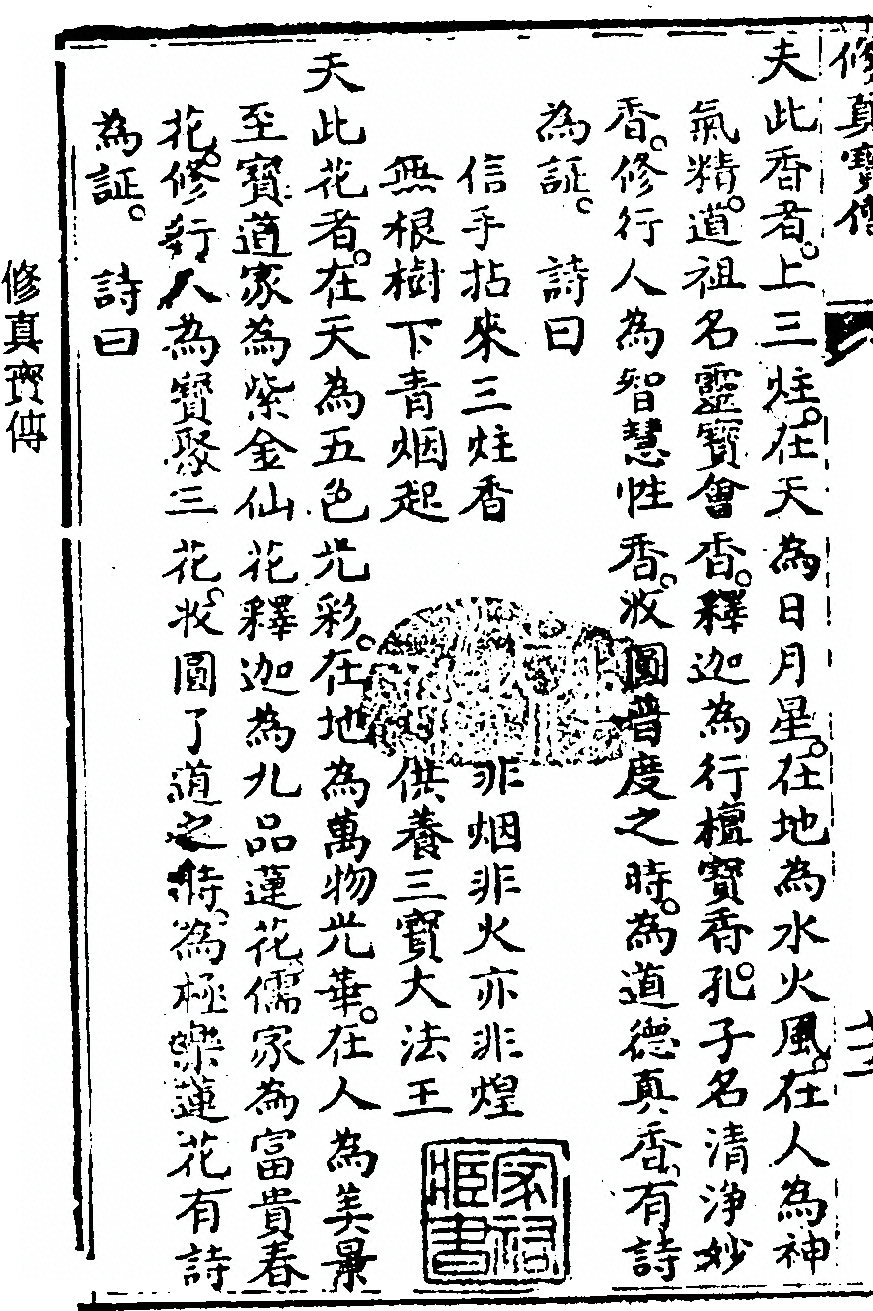 修真寶傳
十二
夫此香者。上三炷。在天為日月星。在地為水火風。在人為神
氣精。道祖名靈寶會香。釋迦為行檀寶香。孔子名清浄妙
香。修行人為智慧性香。收圓普度之時。為道德真香。有詩
為証。 詩曰
信手拈來三炷香 非烟非火亦非煌
無根樹下青烟起 供養三寶大法王
夫此花者。在天為五色光彩。在地為萬物光華。在人為美景
至寶道家為紫金仙花釋迦為九品蓮花儒家為富貴春
花。修行人為寶聚三花。收圓了道之時。為極樂蓮花有詩
為証。 詩曰
家祠
藏書
修真寶傳